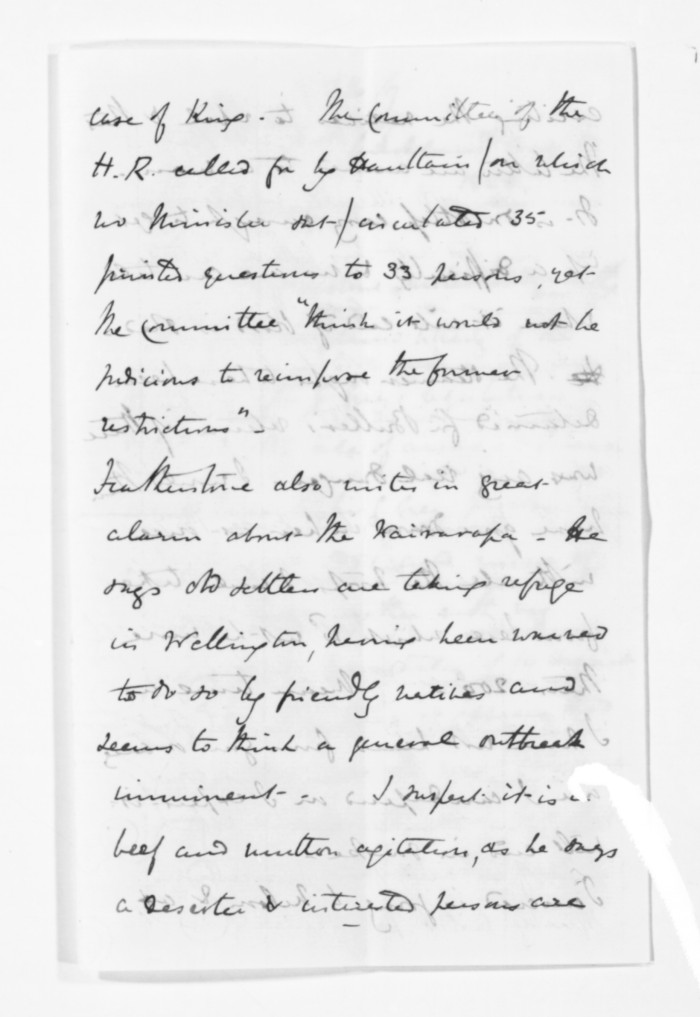 case of King. The Committee of the
H.R. called for by Haultain /on which
no Minister sat/ circulated 35
printed questions to 33 persons, yet
the Committee "think it would not be
judicious to reimpose the former
restrictions".
Featherstone also writes in great
alarm about the Wairarapa - He
says old settlers are taking refuge
in Wellington, having been warned
to do so by friendly natives and
seems to think a general outbreak
imminent - I suspect it is a
beef and mutton agitation, as he says
a deserter & interested persons are